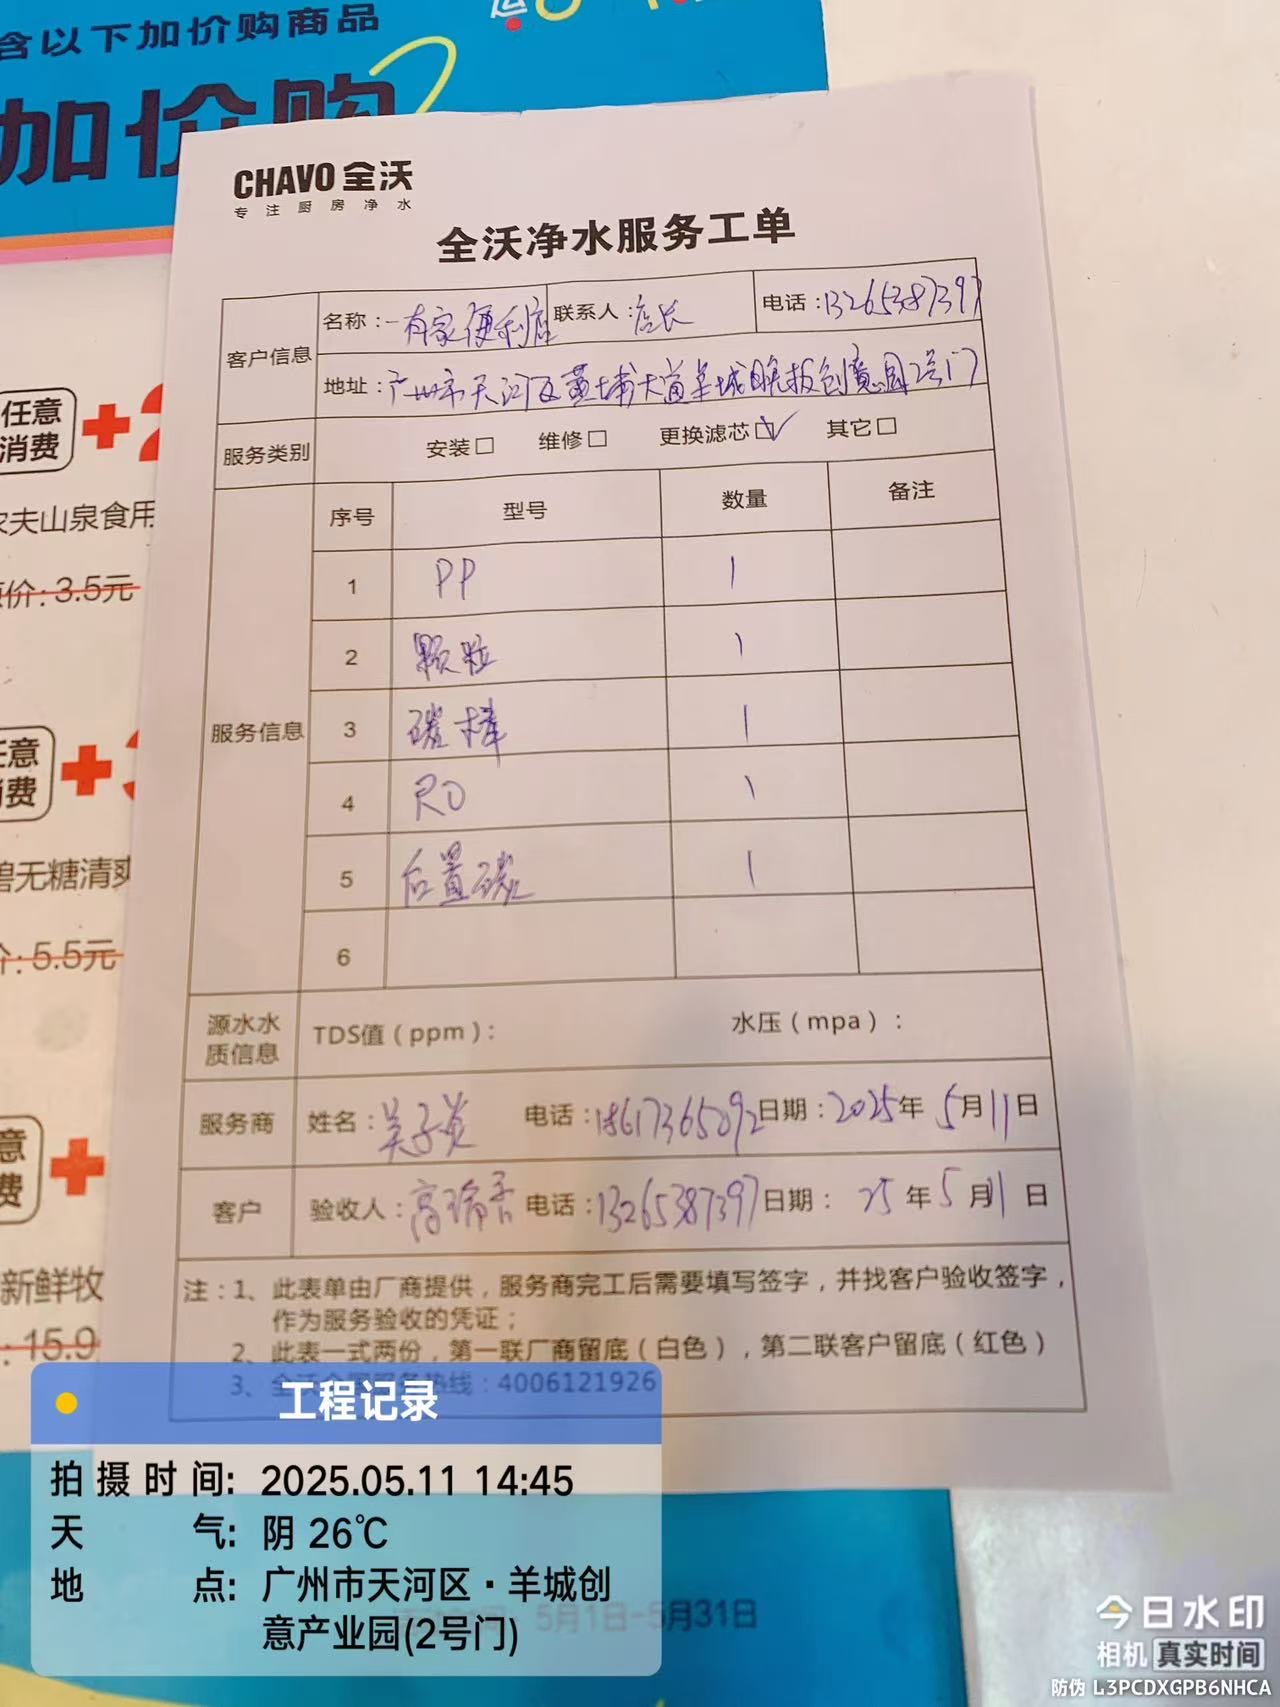 含以下加价购商品
加价购
CHAVO 全沃
专注厨房净水
全沃净水服务工单
客户信息
名称：一有家便利店 联系人：店长 电话：13265387397
地址：广州市天河区黄埔大道羊城晚报创意园2号门
服务类别 安装□ 维修□ 更换滤芯☑ 其它□
服务信息
序号 型号 数量 备注
1 PP 1
2 颗粒 1
3 碳棒 1
4 RO 1
5 后置碳 1
6
源水水质信息 TDS值（ppm）： 水压（mpa）：
服务商 姓名：吴子炎 电话：18617365092 日期：2025年5月11日
客户 验收人：高瑞香 电话：13265387397 日期：25年5月11日
注：1、此表单由厂商提供，服务商完工后需要填写签字，并找客户验收签字，
作为服务验收的凭证；
2、此表一式两份，第一联厂商留底（白色），第二联客户留底（红色）
3、全沃全国服务热线：4006121926
任意
消费
+2
农夫山泉食用
原价：3.5元
任意
消费
+
碧无糖清爽
价：5.5元
意
费
+
新鲜牧
：15.9
工程记录
拍摄时间：2025.05.11 14:45
天气：阴 26℃
地点：广州市天河区·羊城创
意产业园(2号门)
5月1日-5月31日
今日水印
相机 真实时间
防伪 L3PCDXGPB6NHCA